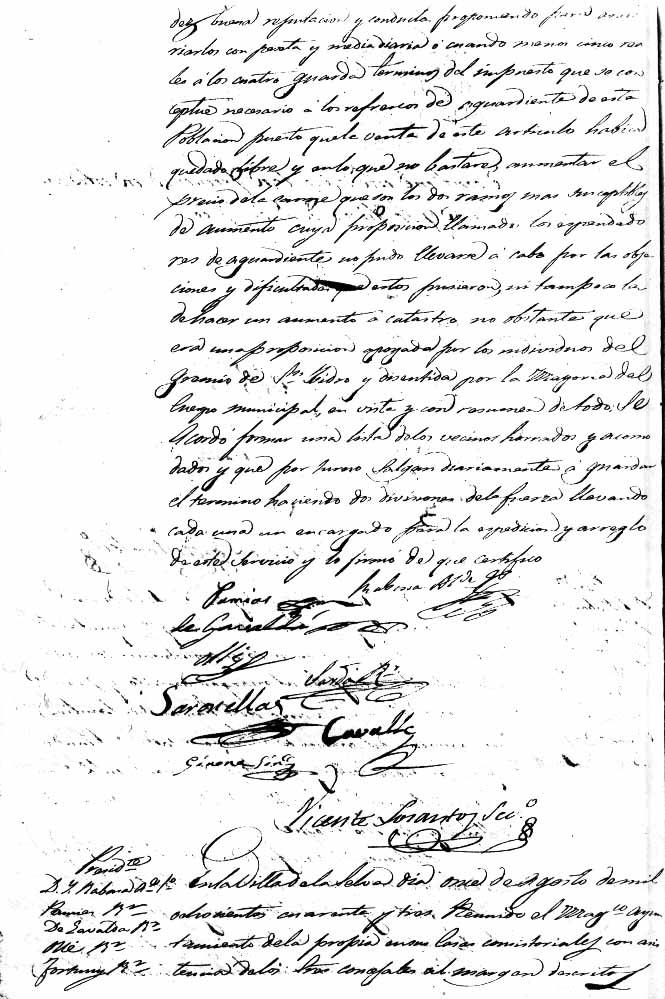 de buena reputacion y conducta proponiendo para
riarlos con peseta y media diaria ó cuando menos cinco rea
les á los cuatro guarda terminos del impuesto que se con
ceptue necesario á los refrescos de aguardiente de esta
Poblacion puesto que la venta de este articulo habia
quedado libre y en lo que no bastare, aumentar el
precio de la carne que son los dos ramos mas suceptibles
de aumento cuya proposicion llamado los espendedo
res de aguardiente no pudo llevarse á cabo por las obje
ciones y dificultades que estos pusieron, ni tampoco la
de hacer un aumento á catastro no obstante que
era una proposicion apoyada por los individuos del
Gremio de Sn. Isidro y disentida por la Mayoria del
Cuerpo municipal, en vista y con resumen de todo, Se
Acordó formar una lista de los vecinos honrados y acomo
dados y que por turno Salgan diariamente á guardar
el termino haciendo dos divisiones de la fuerza llevando
cada una un encargado para la espedicion y arreglo
de este Servicio y lo firmó de que certifico
Rabasa
Pamies
Sardá Rr
Cavallé
Girona Sinco
Vicente Sorantos Scio
Presidte
D. J. Rabasa
Pamies Rr
Rr
Rr
Fortuny Rr
En la Villa de la Selva dia once de Agosto de mil
ochocientos cuarenta y tres. Reunido el Magco Ayun
tamiento de la propia en sus Casas consistoriales con asis
tencia de los Sres concejales al margen descritos